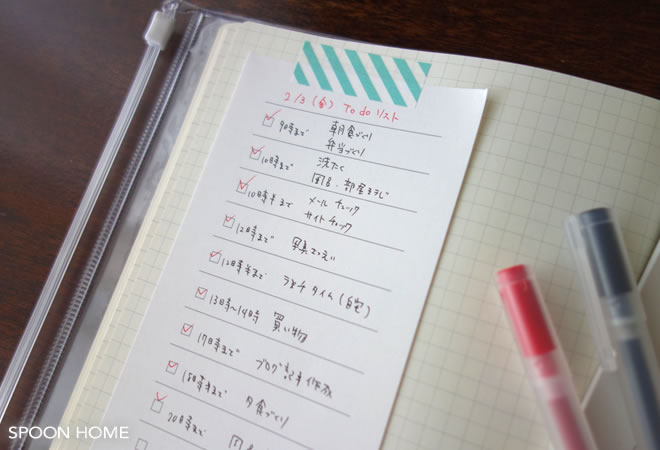 2/3(金) To do リスト
9時まで 朝食づくり
弁当づくり
10時まで 洗たく
部屋そうじ
10時半まで メールチェック
サイトチェック
12時まで 写真さつえい
12時半まで ランチタイム(自宅)
13時~14時 買い物
17時まで ブログ記事作成
18時半まで 夕食づくり
20時まで
SPOON HOME